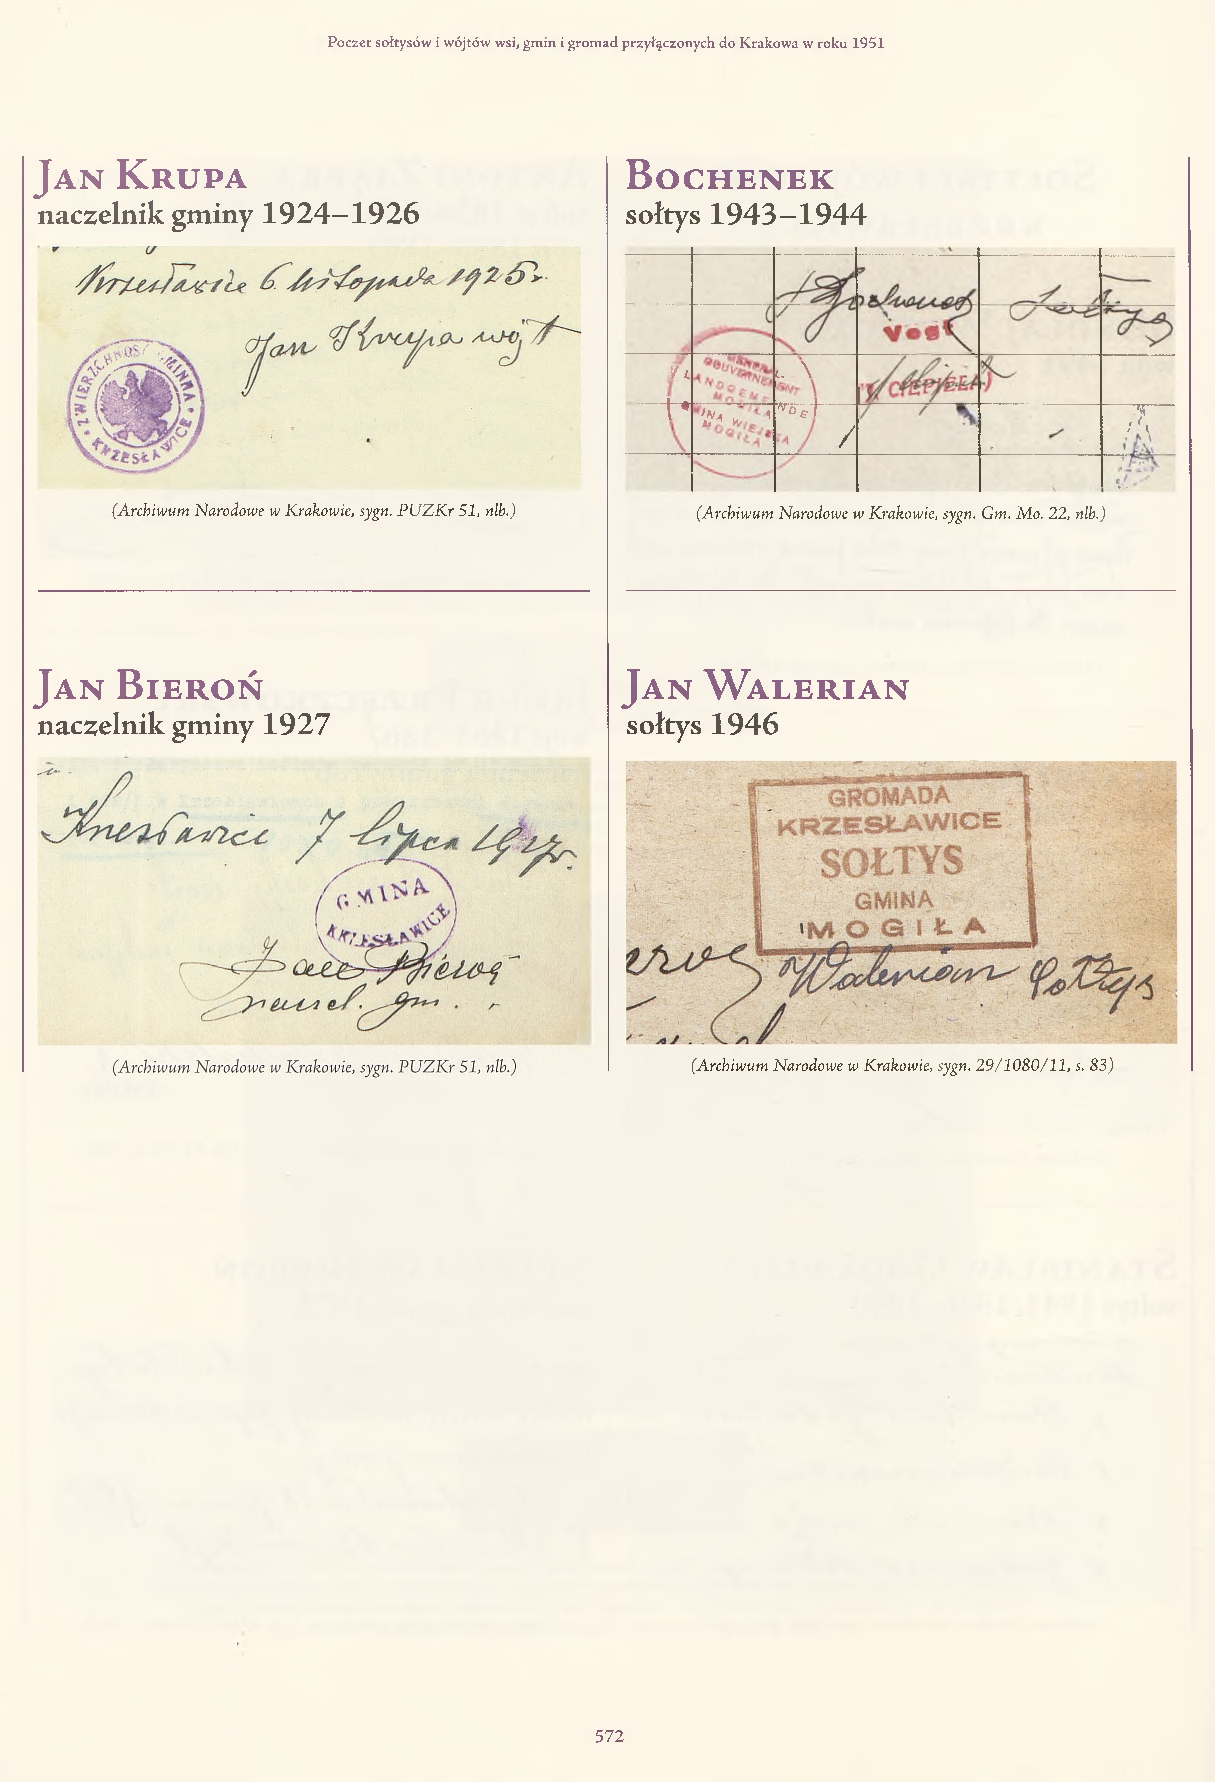 Poczet sołtysów i wójtów wsi, gmin i gromad przyłączonych do Krakowa w roku 1951
Jan Krupa
naczelnik gminy 1924–1926
Krzesławice 6 listopada 1925 r.
Jan Krupa wójt
ZWIERZCHNOŚĆ GMINNA
KRZESŁAWICE
(Archiwum Narodowe w Krakowie, sygn. PUZKr 51, nlb.)
Jan Bieroń
naczelnik gminy 1927
Krzesławice 7 lipca 1927 r.
GMINA
KRZESŁAWICE
Jan Bieroń
naczel. gm.
(Archiwum Narodowe w Krakowie, sygn. PUZKr 51, nlb.)
Bochenek
sołtys 1943–1944
Bochenek Sołtys
Vogt
GENERAL-
GOUVERNEMENT
LANDGEMEINDE
MOGIŁA
GMINA WIEJSKA
MOGIŁA
CIEPIELA)
(Archiwum Narodowe w Krakowie, sygn. Gm. Mo. 22, nlb.)
Jan Walerian
sołtys 1946
GROMADA
KRZESŁAWICE
SOŁTYS
GMINA
MOGIŁA
Walerian sołtys
(Archiwum Narodowe w Krakowie, sygn. 29/1080/11, s. 83)
572